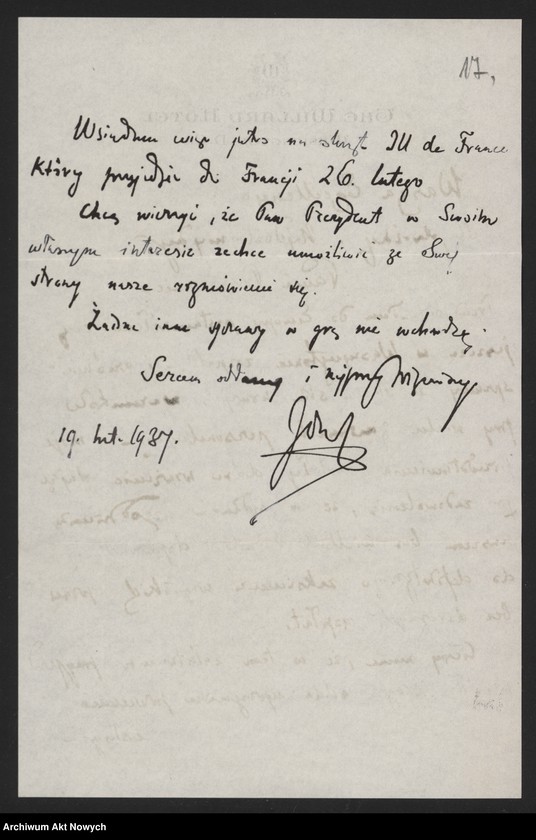 17,
Wsiadam więc jutro na statek Ill de France
Który przyjedzie do Francji 26. lutego
Chcę wierzyć, że Pan Prezydent w Swoim
własnym interesie zechce umożliwić ze Swej
strony nasze rozmówienie się.
Żadne inne sprawy w grę nie wchodzą.
Sercem oddany i
19. lut. 1937.
Archiwum Akt Nowych